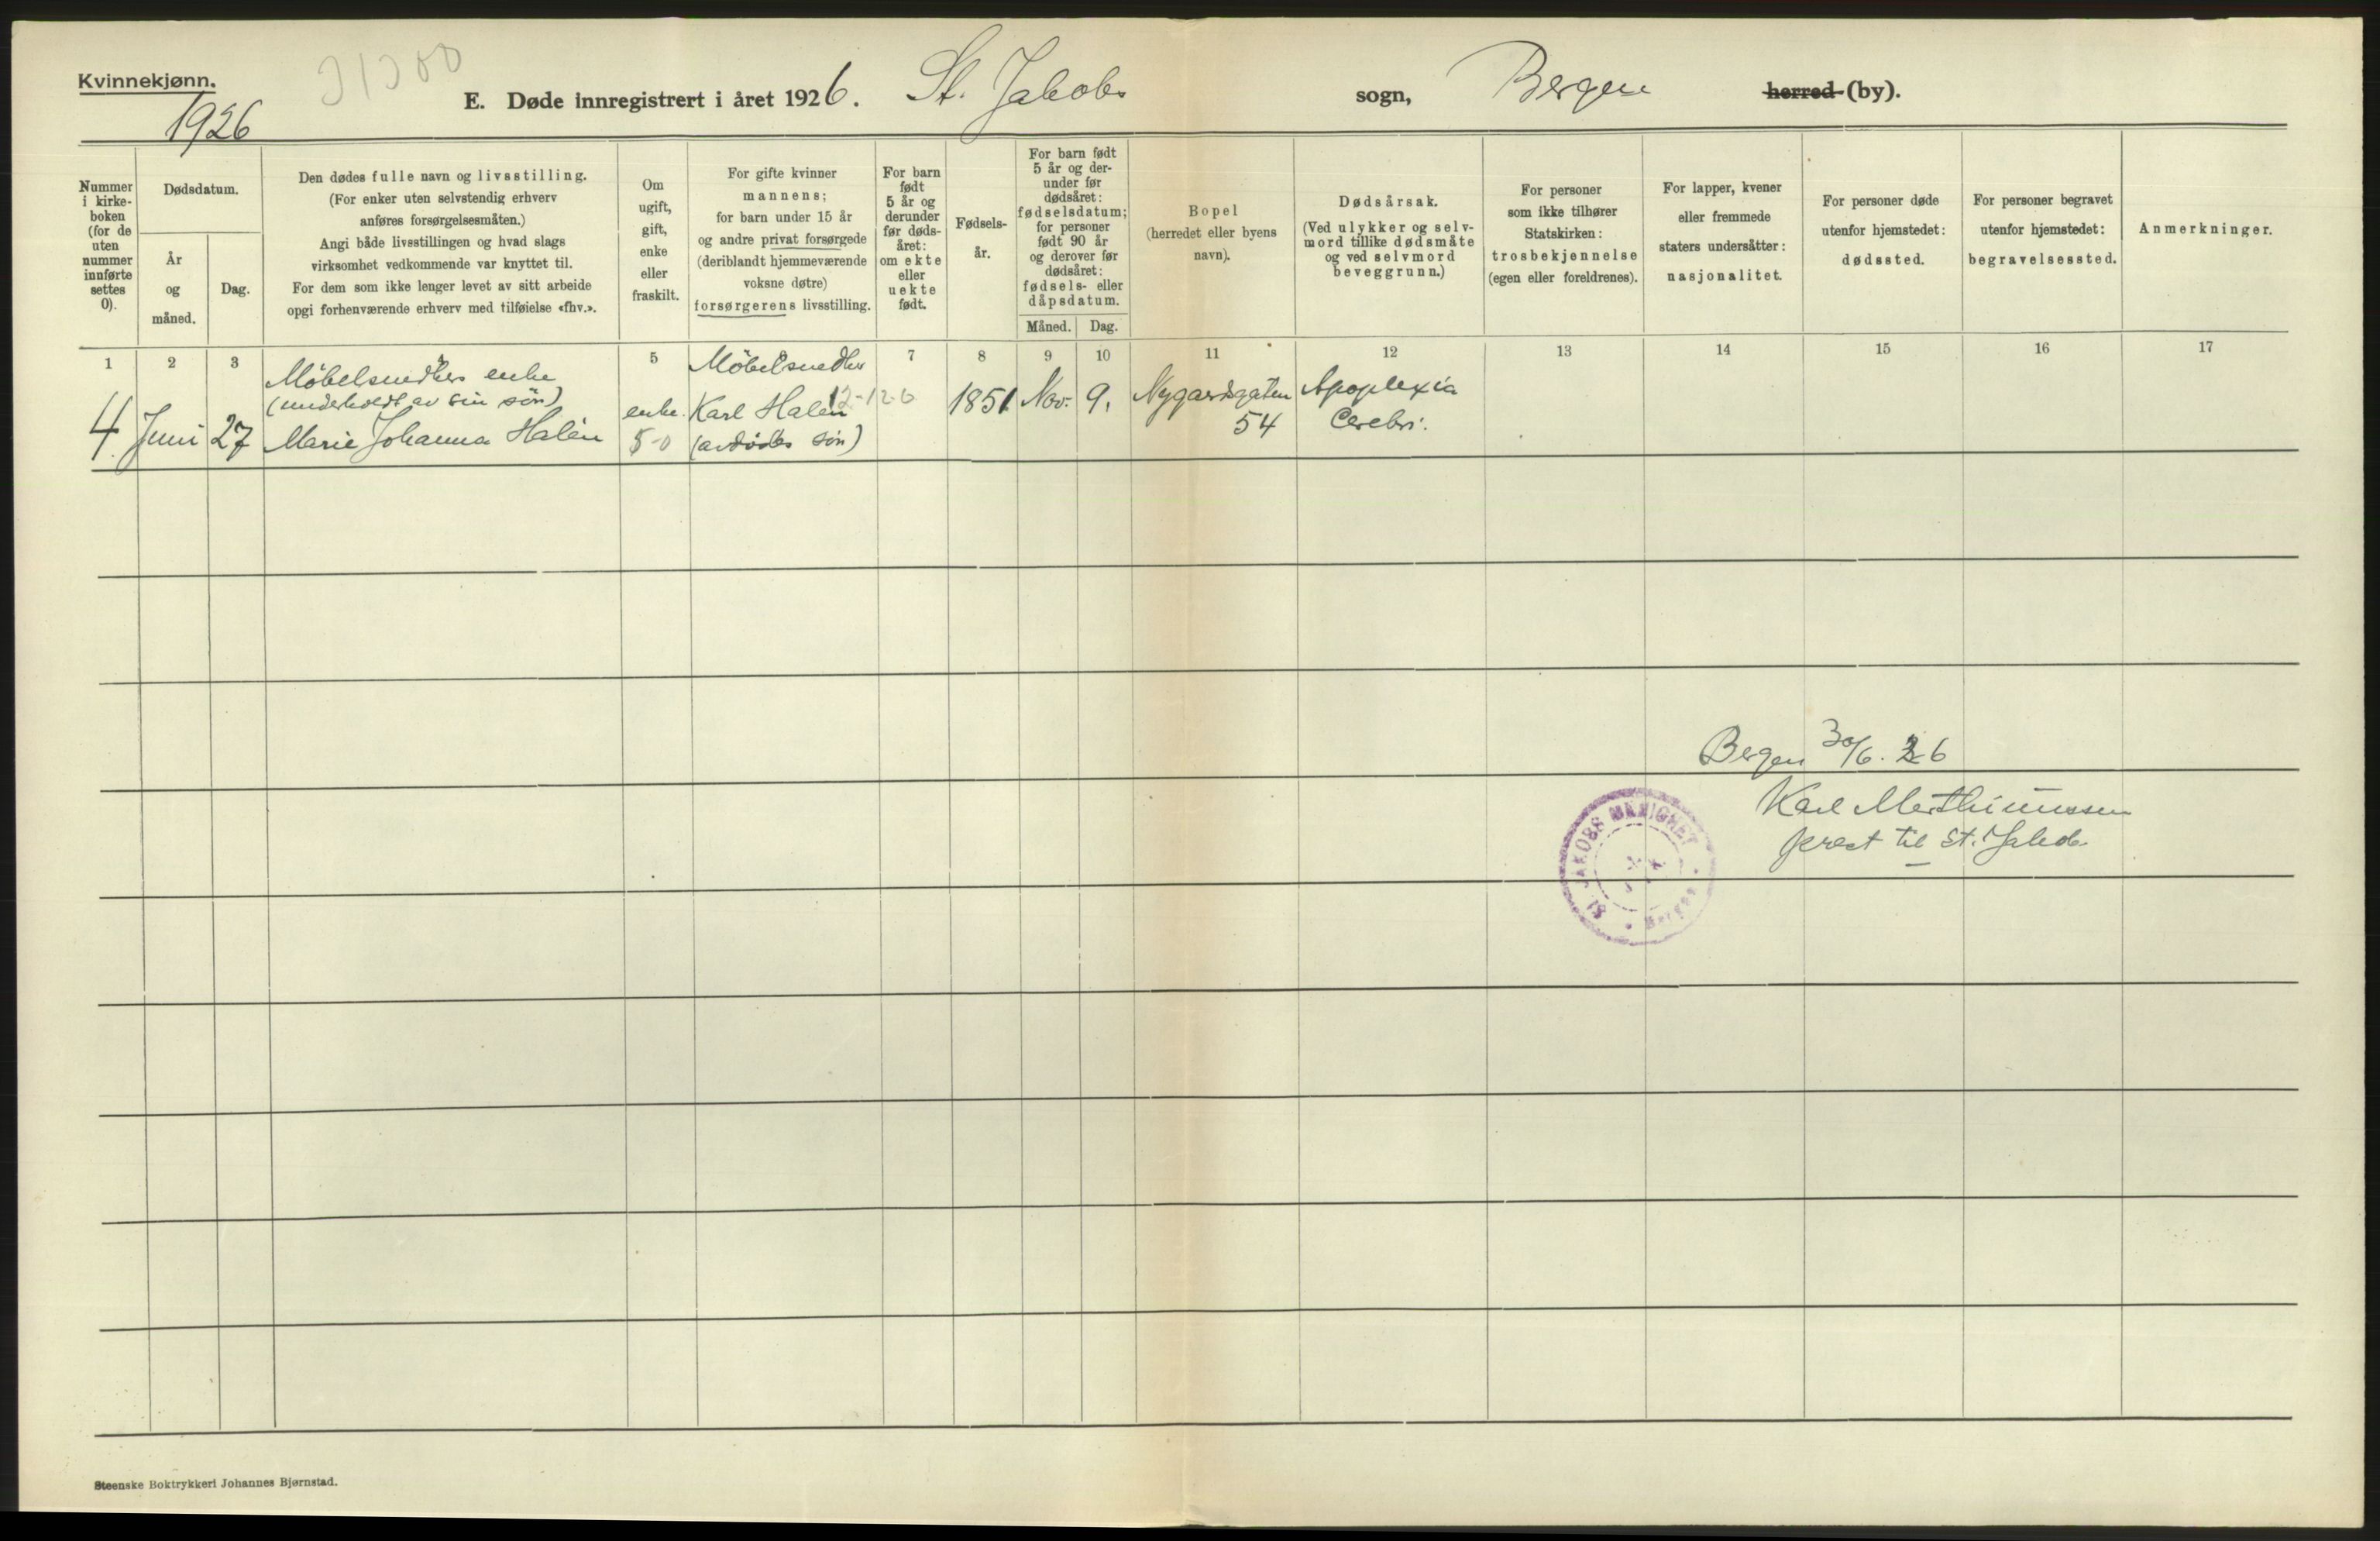 Kvinnekjønn.
1926
E. Døde innregistrert i året 1926. St. Jakobs sogn, Bergen herred (by).
Nummer
i kirke-
boken
(for de
uten
nummer
innførte
settes
0).
Dødsdatum.
År
og
måned.
Dag.
Den dødes fulle navn og livsstilling.
(For enker uten selvstendig erhverv
anføres forsørgelsesmåten.)
Angi både livsstillingen og hvad slags
virksomhet vedkommende var knyttet til.
For dem som ikke lenger levet av sitt arbeide
opgi forhenværende erhverv med tilføielse «fhv.».
Om
ugift,
gift,
enke
eller
fraskilt.
For gifte kvinner
mannens;
for barn under 15 år
og andre privat forsørgede
(deriblandt hjemmeværende
voksne døtre)
forsørgerens livsstilling.
For barn
født
5 år og
derunder
før døds-
året:
om ekte
eller
uekte
født.
Fødsels-
år.
For barn født
5 år og der-
under før
dødsåret:
fødselsdatum;
for personer
født 90 år
og derover før
dødsåret:
fødsels- eller
dåpsdatum.
Måned.
Dag.
Bopel
(herredet eller byens
navn).
Dødsårsak.
(Ved ulykker og selv-
mord tillike dødsmåte
og ved selvmord
beveggrunn.)
For personer
som ikke tilhører
Statskirken:
trosbekjennelse
(egen eller foreldrenes).
For lapper, kvener
eller fremmede
staters undersåtter:
nasjonalitet.
For personer døde
utenfor hjemstedet:
dødssted.
For personer begravet
utenfor hjemstedet:
begravelsessted.
Anmerkninger.
1 2 3 5 7 8 9 10 11 12 13 14 15 16 17
4. Juni 27
Møbelsnedkers enke
(underholdt av sin søn)
Marie Johanna Halén
enke.
5-0
Møbelsnedker
Karl Halén
(avdødes søn)
12-12-0
1851 Nov. 9.
Nygardsgaten
54
Apoplexia
Cerebri.
Bergen 30/6. 26
prest til St. Jakob
ST JAKOBS MENIGHET
Bergen
Steenske Boktrykkeri Johannes Bjørnstad.